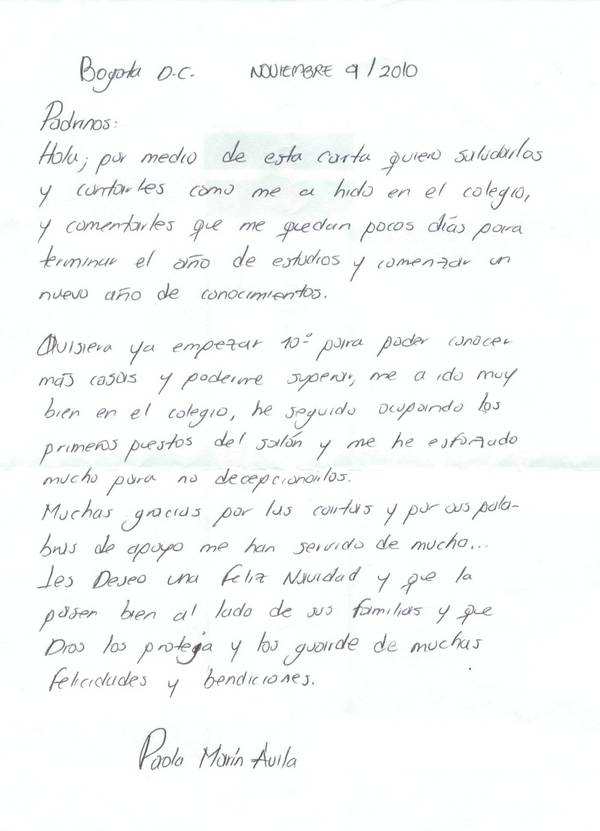 Bogota D.C. NOVIEMBRE 9/2010
Padrinos:
Hola; por medio de esta carta quiero saludarlos
y contarles como me a hido en el colegio,
y comentarles que me quedan pocos días para
terminar el año de estudios y comenzar un
nuevo año de conocimientos.
Quisiera ya empezar 10º para poder conocer
más cosas y poderme superar, me a ido muy
bien en el colegio, he seguido ocupando los
primeros puestos del salón y me he esforzado
mucho para no decepcionarlos.
Muchas gracias por las cartas y por sus pala-
bras de apoyo me han servido de mucho...
Les Deseo una feliz Navidad y que la
pasen bien al lado de sus familias y que
Dios los proteja y los guarde de muchas
felicidades y bendiciones.
Paola Marín Avila